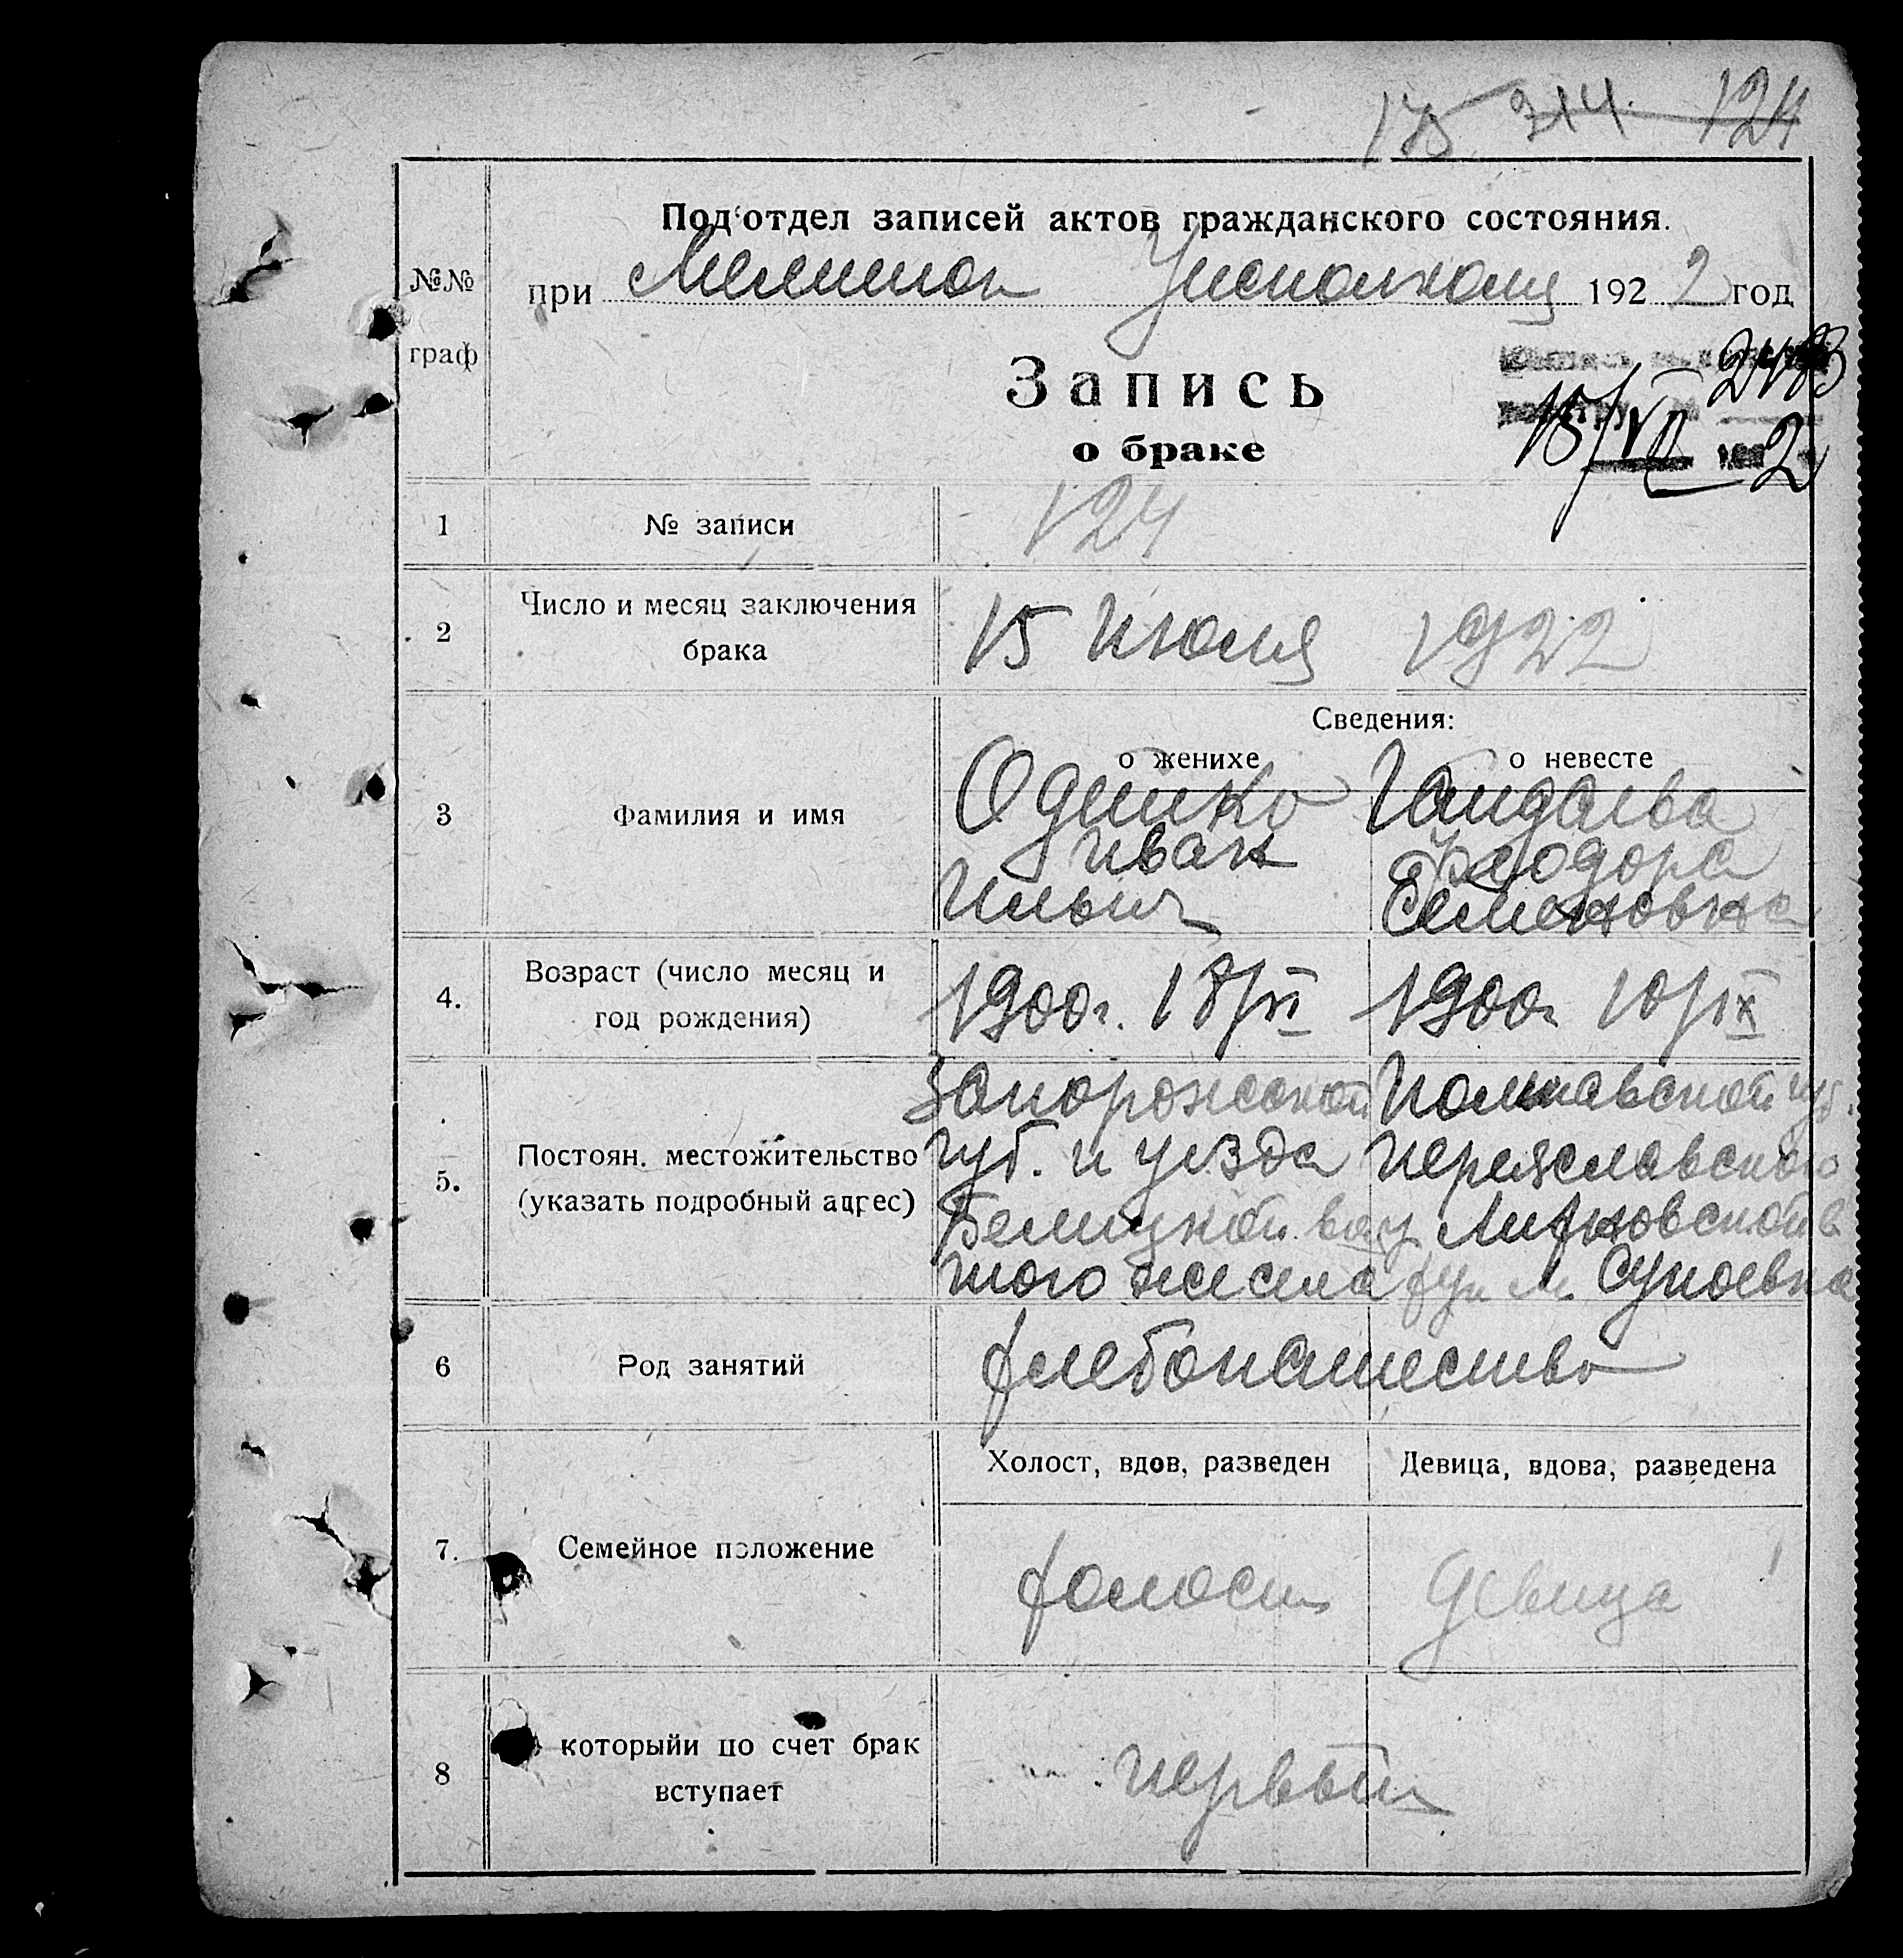 175 314 124
Под'отдел записей актов гражданского состояния.
№№ граф
при Мелитоп Уисполкому 1922 год
Запись
о браке
2483
15/VII 1922
1 № записи 124
2 Число и месяц заключения брака 15 июля 1922
Сведения:
о женихе о невесте
3 Фамилия и имя
Одинко Иван Ильич
Феодора Семеновна
4. Возраст (число месяц и год рождения)
1900г. 18/VI 1900г 10/IX
5. Постоян. местожительство (указать подробный адрес)
Запорожской губ. и уезда
того же села
Полтавской губ.
Переяславского
6 Род занятий хлебопашество
Холост, вдов, разведен Девица, вдова, разведена
7. Семейное положение холост девица
8 которыйи по счет брак вступает первый